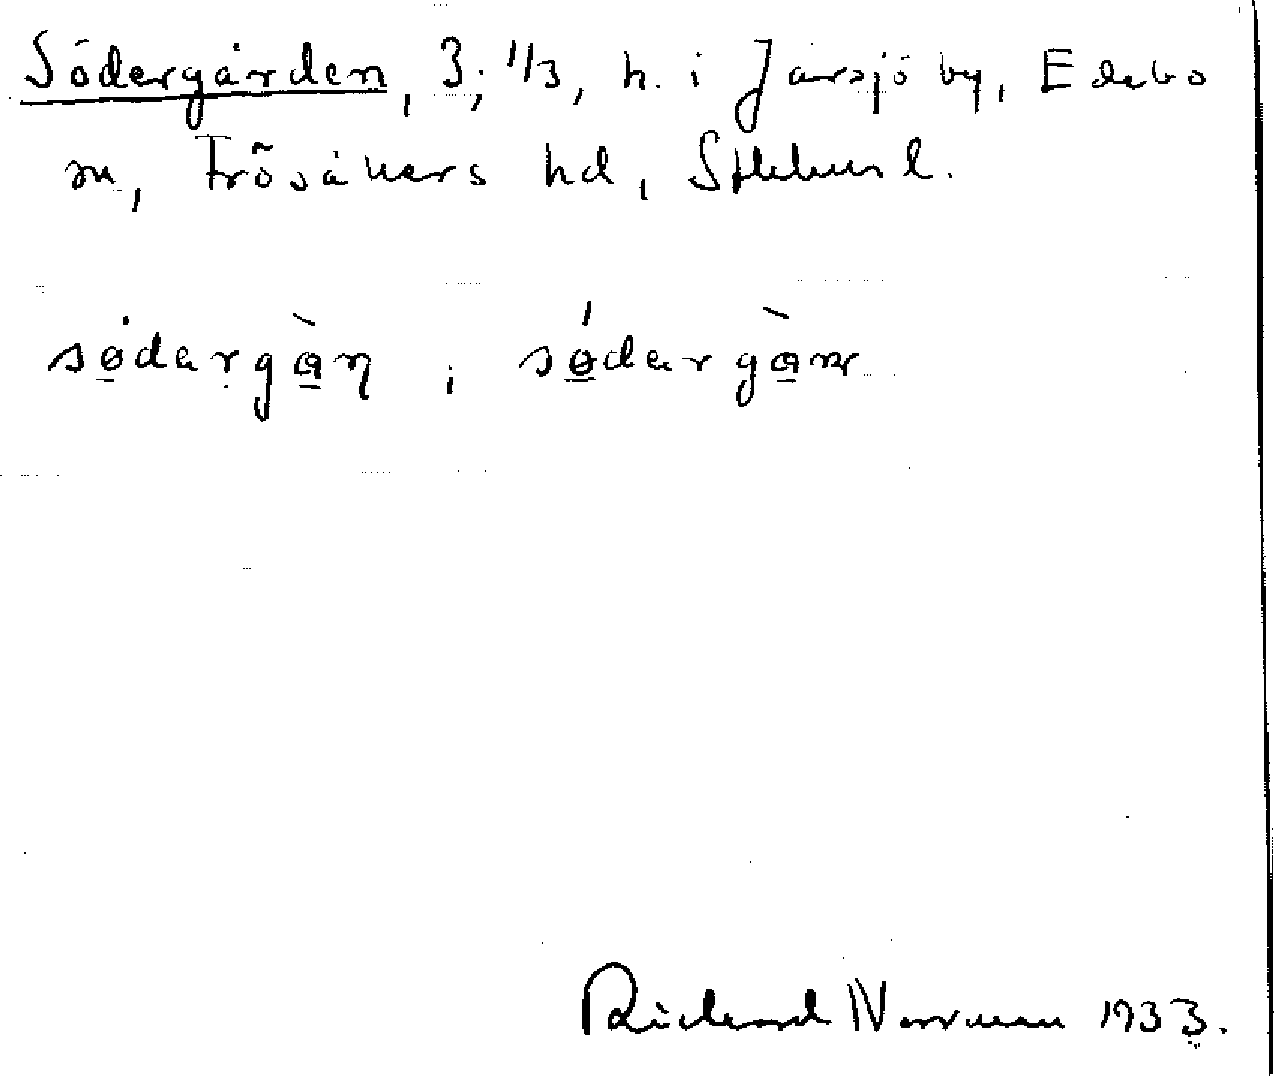 Södergården, 3; 1/3, h. i Järsjö by, Edebo
sn, Frösåkers hd, Sthlms l.
sǿdargàn , sǿdargàn
Richard Norrman 1933.